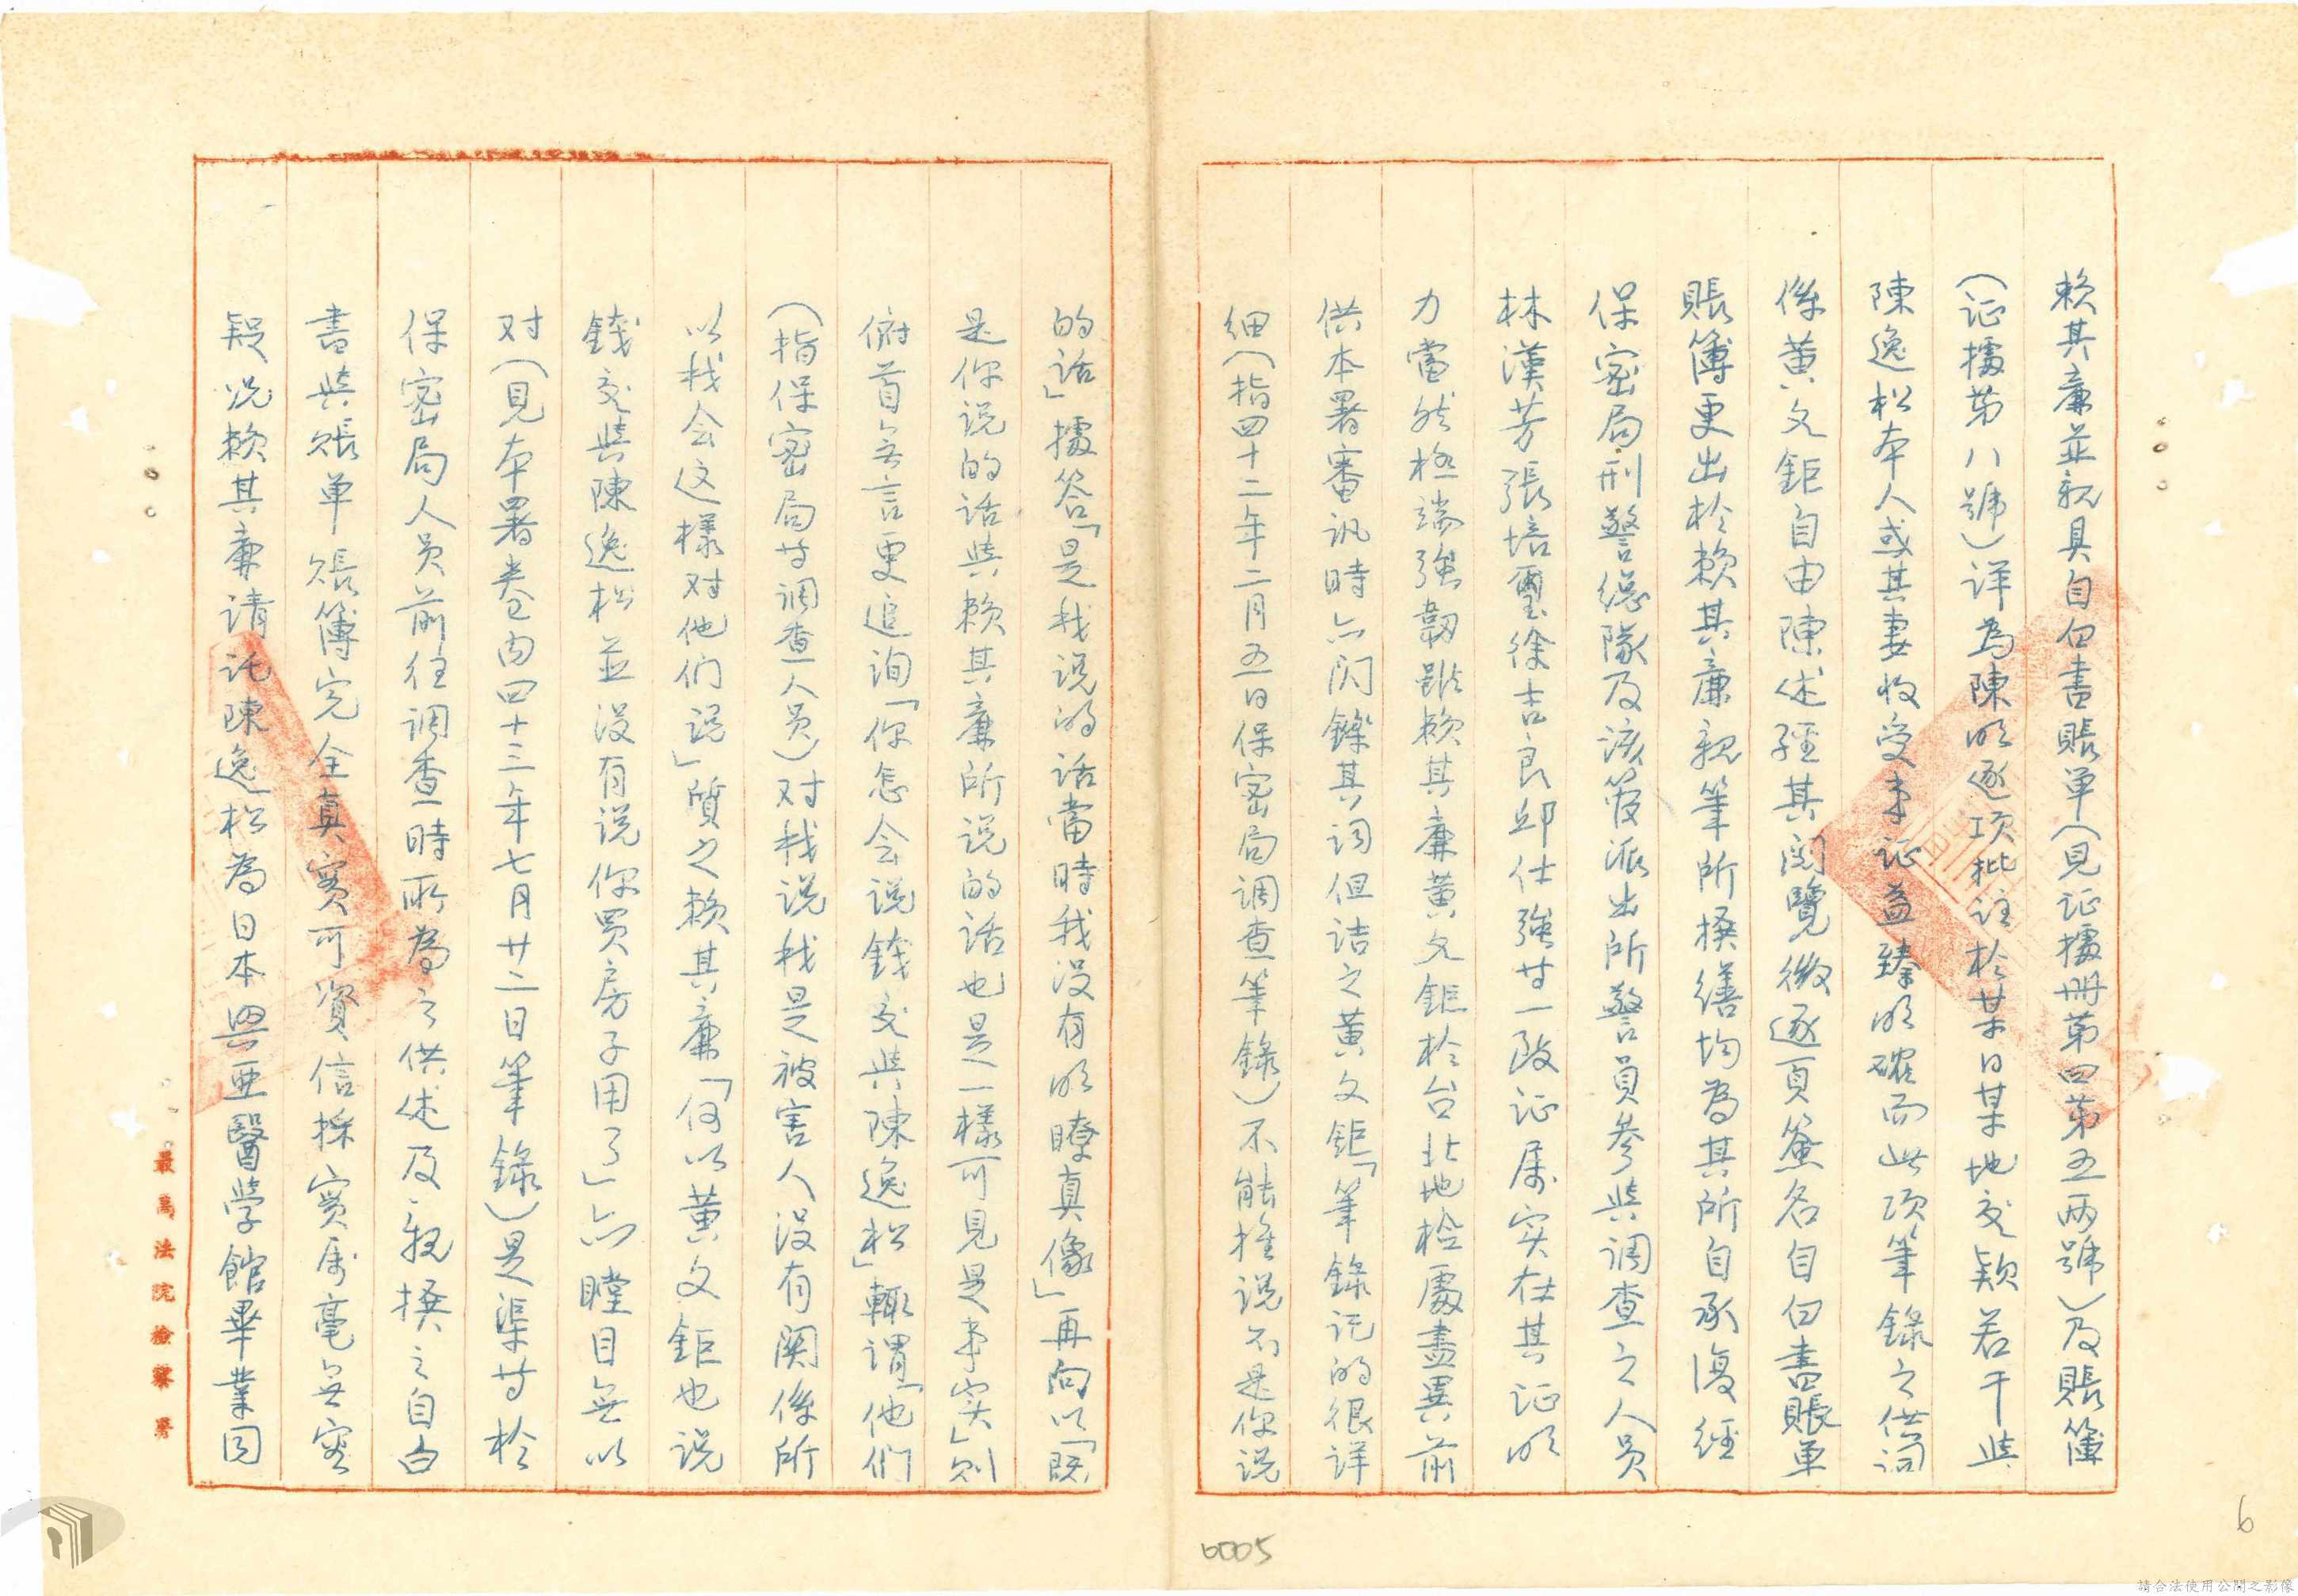 賴其廉並親具自白書賬單(見证據册第四第五兩號)及賬簿
(证據第八號)详為陳明逐项批註於某日某地交款若干與
陳逸松本人或其妻收受事证益臻明確而此项筆錄之供词
係黄文鉅自由陳述經其閱覽後逐頁簽名自白書賬单
賬簿更出於賴其廉親筆所撰繕均為其所自承復經
保密局刑警總隊及該管派出所警員參與调查之人员
林漢芳張培璽徐吉良邱仕強廿一致证属实在其证明
力當然極端強韌雖賴其廉黄文鉅於台北地检處盡異前
供本署審讯時亦閃鑠其词但诘之黄文鉅「筆錄记的很详
细(指四十二年二月五日保密局调查筆錄)不能推说不是你说
的话」據答「是我说的话當時我没有明瞭真像」再向以「既
是你说的话與賴其廉所说的话也是一樣可見是事实」则
俯首无言更追询「你怎会说錢交與陳逸松」輒谓「他们
(指保密局廿调查人员)对我说我是被害人没有関係所
以我会这樣对他们说」質之賴其廉「何以黄文鉅也说
錢交與陳逸松並没有说你買房子用了」亦瞠目無以
对(見本署卷内四十三年七月廿二日筆錄)是渠廿於
保密局人员前往调查時所為之供述及親撰之自白
書與賬单賬簿完全真實可資信採實属毫無容
疑况賴其廉请託陳逸松為日本興亜醫学館畢業同
最高法院檢察署
6
0005
請合法使用公開之影像